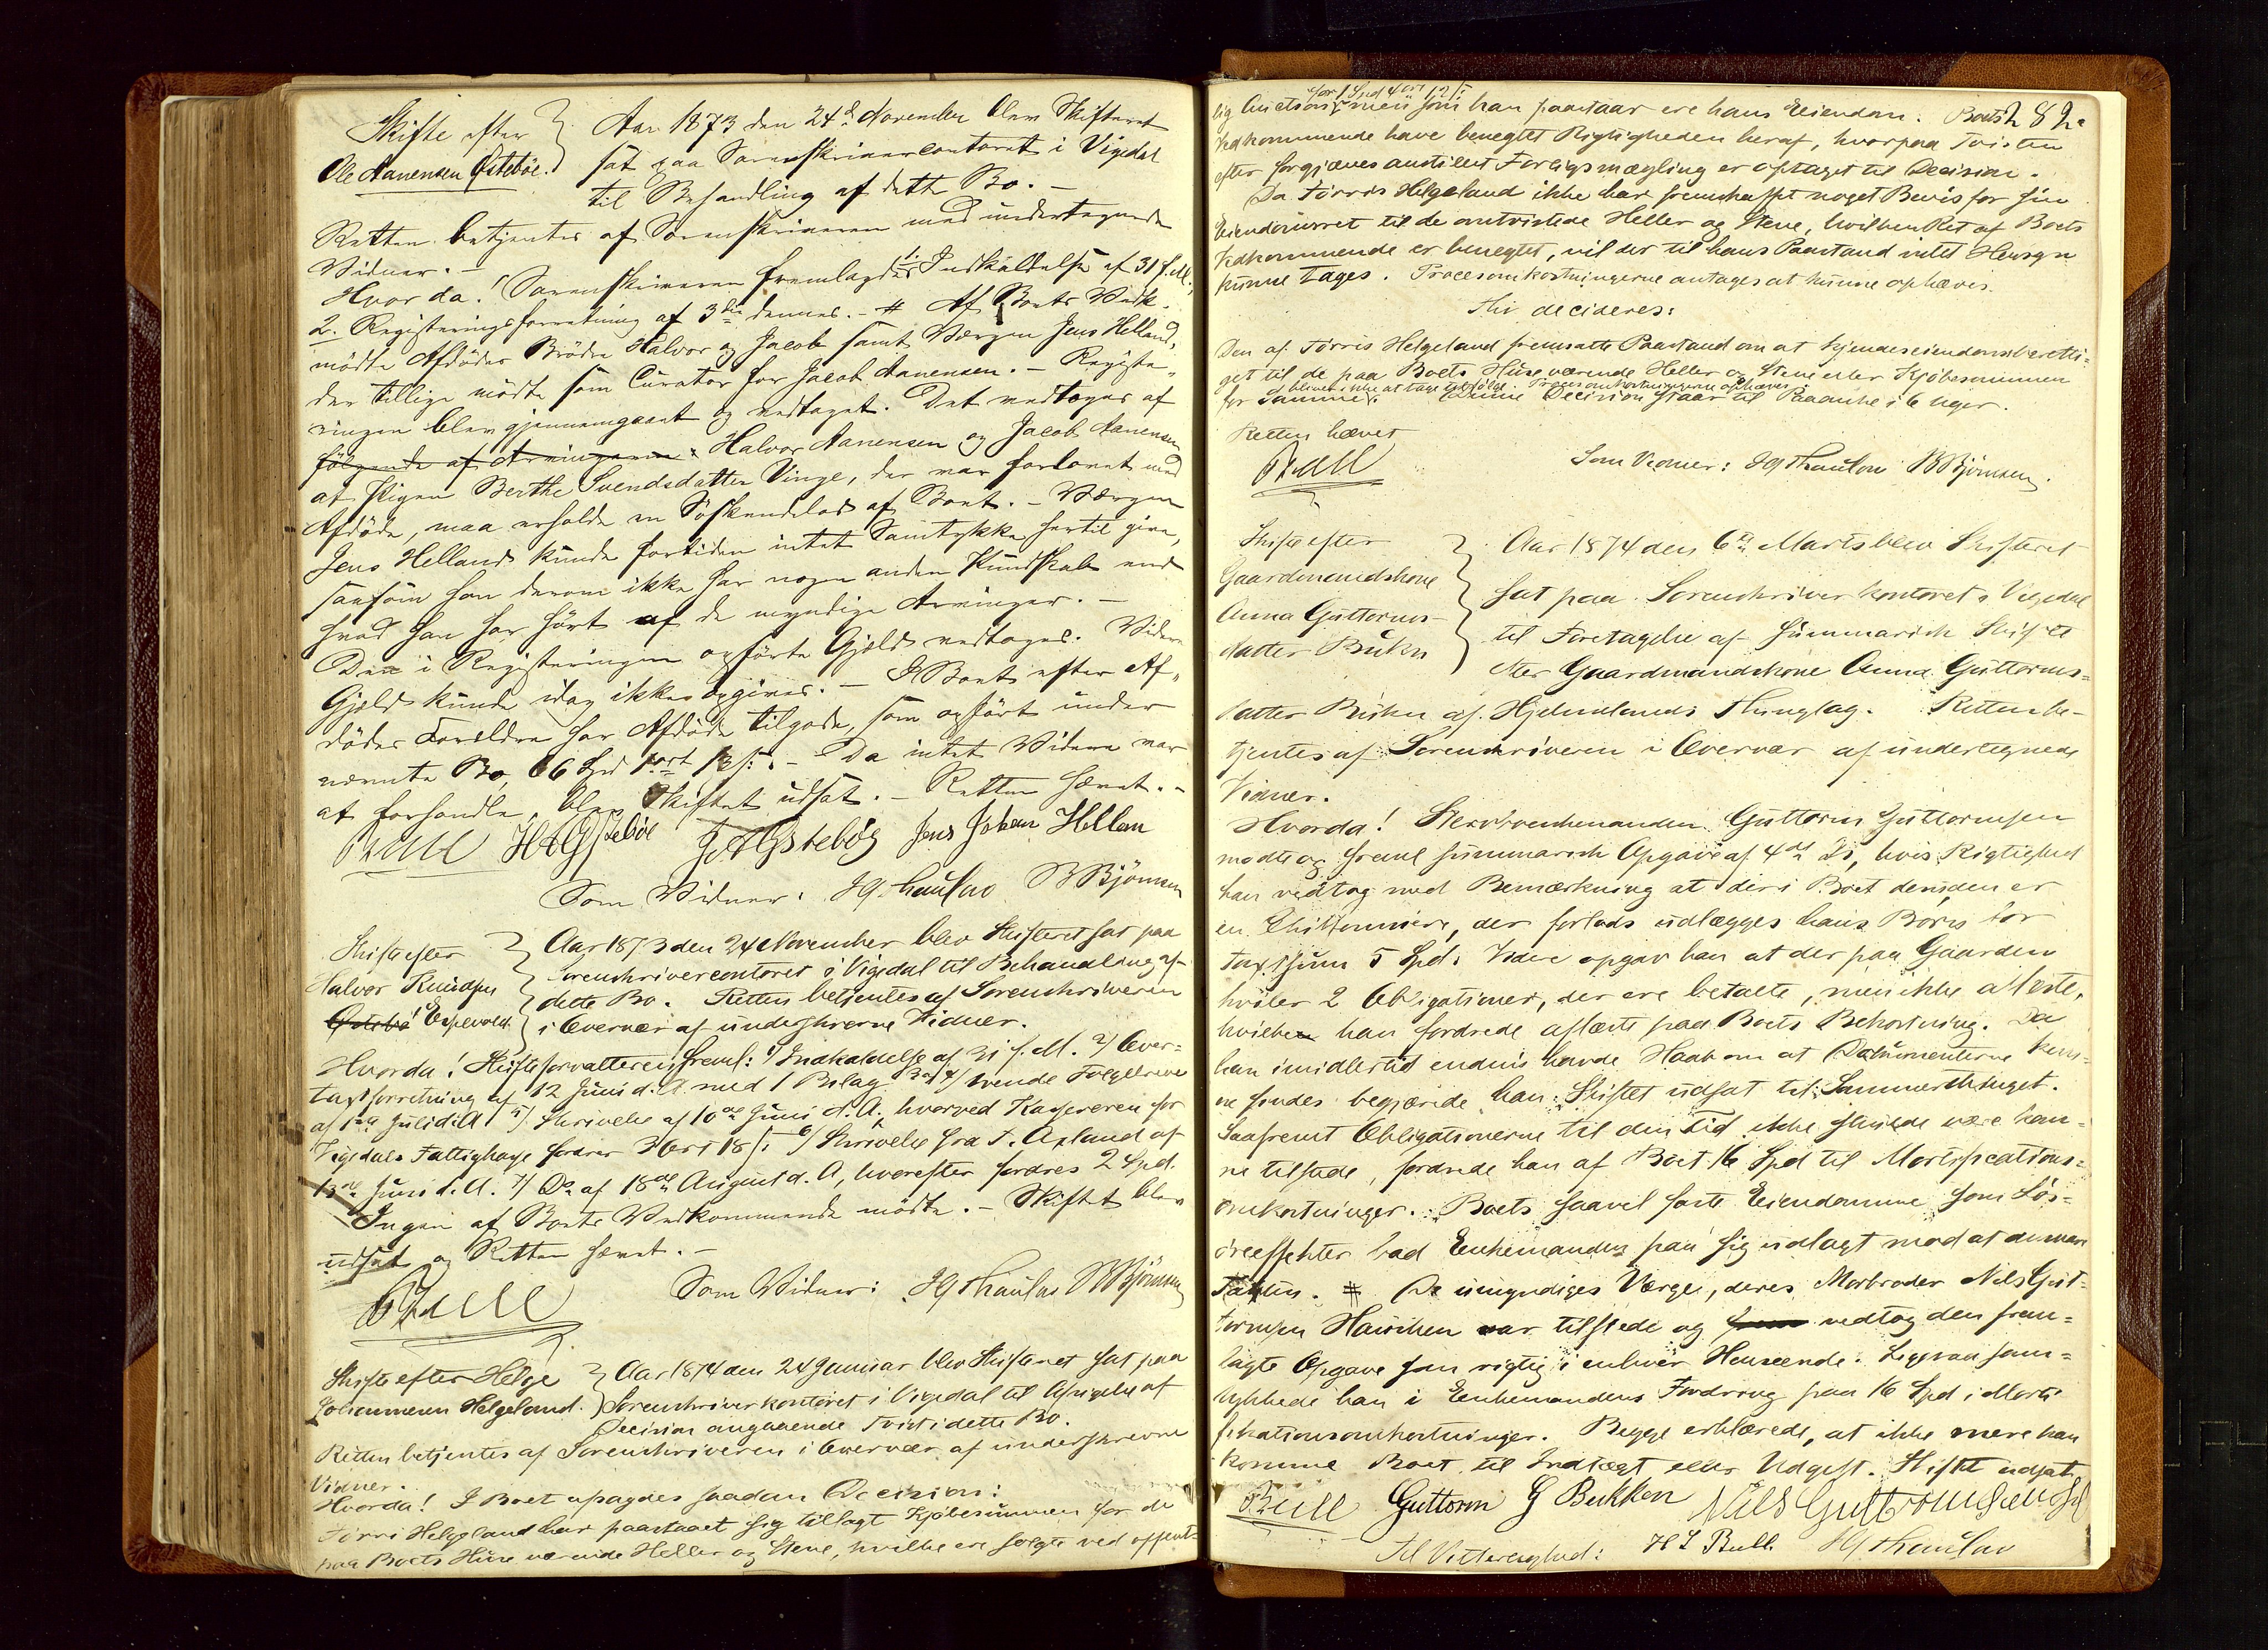 Skifte efter
Ole Aanensen Østebøe.
Aar 1873 den 24de November blev Skifteret
sat paa Sorenskrivercontoret i Vigedal
til Behandling af dette Bo. –
Retten betjentes af Sorenskriveren med undertegnede
Vidner. –
Hvorda! Sorenskriveren fremlagde 1. Indkaldelse af 31 f.M.,
2. Registeringsforretning af 3die dennes. – # Af Boets Vedk.
mødte Afdødes Brødre Halvor og Jacob samt Værgen Jens Helland,
der tillige mødte som Curator for Jacob Aanensen. – Registe-
ringen blev gjennemgaaet og vedtaget. Det vedtoges af
følgende af Arvingerne: Halvor Aanensen og Jacob Aanensen
at Pigen Berthe Svendsdatter Vinge, der var forlovet med
Afdøde, maa erholde en Søskendelod af Boet. – Værgen
Jens Helland kunde fortiden intet Samtykke hertil give,
saasom han derom ikke har nogen anden Kundskab end
hvad han har hørt af de myndige Arvinger. –
Den i Registeringen opførte Gjæld vedtoges. Videre
Gjæld kunde idag ikke opgives. – I Boet efter Af-
dødes Forældre har Afdøde tilgode, som opført under
nævnte Bo, 66 Spd 1 ort 13 s. – Da intet Videre var
at forhandle, blev Skiftet udsat. – Retten hævet. –
Bull H A Østeböe J A Östeböe Jens Johan Hellan
Som Vidner: Hg Thaulow B Bjørnsen
Skifte efter
Halvor Knudsen
Østebø Espevold
Aar 1873 den 24 November blev Skifteret sat paa
Sorenskrivercontoret i Vigedal til Behandling af
dette Bo. Retten betjentes af Sorenskriveren
i Overvær af undeskrevne Vidner.
Hvorda! Skifteforvalteren freml: 1) Indkaldelse af 31 f.M. 2) Over-
taxtforretning af 12 Juni d.A med 1 Bilag 3 og 4) tvende Følgebreve
af 1ste Juli d.A 5) Skrivelse af 10de Juni d.A., hvorved Kassereren for
Vigedals Fattigkasse fordrer 3 ort 18 s. 6) Skrivelse fra T. Apland af
13de Juni d.A. 7) Do af 18de August d.A, hvorefter fordres 2 Spd.
Ingen af Boets Vedkommende mødte. – Skiftet blev
udsat og Retten hævet. –
Bull
Som Vidner: Hg Thaulow B Bjørnsen
Skifte efter Helge
Johannesen Helgeland.
Aar 1874 den 24 Januar blev Skifteret sat paa
Sorenskriverkontoret i Vigedal til Afsigelse af
Decision angaaende Tvist i dette Bo.
Retten betjentes af Sorenskriveren i Overvær af underskrevne
Vidner.
Hvorda! I Boet afsagdes saadan Decision:
Tørris Helgeland har paastaaet sig tillagt Kjøbesummen for de
paa Boets Huse værende Heller og Stene, hvilke ere solgte ved offent-
282
lig Auction for 1 Spd 4 ort 12 s: men som han paastaar ere hans Eiendom. Boets
Vedkommende have benegtet Rigtigheden heraf, hvorpaa Tvisten
efter forgjæves anstillet Forligsmægling er optaget til Decision.
Da Tørris Helgeland ikke har fremskaffet noget Bevis for sin
Eiendomsret til de omtvistede Heller og Stene, hvilken Ret af Boets
Vedkommende er benegtet, vil der til hans Paastand intet Hensyn
kunne tages. Procesomkostningerne antages at kunne ophæves.
Thi decideres:
Den af Tørris Helgeland fremsatte Paastand om at kjendes eiendomsberetti-
get til de paa Boets Huse værende Heller og Stene eller Kjøbesummen
for samme bliver ikke at tage tilfølge. Procesomkostningerne ophæves. Denne Decision staar til Paaanke i 6 Uger.
Retten hævet
Bull
Som Vidner: Hg Thaulow B Bjørnsen.
Skifte efter
Gaardmandskone
Anna Guttorms-
datter Bukn
Aar 1874 den 6te Marts blev Skifteret
sat paa Sorenskriverkontoret i Vigedal
til Foretagelse af Summarisk Skifte
efter Gaardmandskone Anna Guttorms-
datter Bukn af Hjelmelands Thinglag. Retten be-
tjentes af Sorenskriveren i Overvær af undertegnede
Vidner.
Hvorda! Stervboenkemanden Guttorm Guttormsen
mødte og freml summarisk Opgave af 4de ds, hvis Rigtighed
han vedtog med Bemærkning at der i Boet desuden er
en Chiffonniere, der forlods udlægges hans Børn for
Taxtsum 5 Spd. Videre opgav han at der paa Gaarden
hviler 2 Obligationer, der ere betalte, men ikke aflæste,
hvilke han fordrede aflæste paa Boets Bekostning. Da
han imidlertid endnu havde Haab om at Dokumenterne kun-
ne findes begjærede han Skiftet udsat til Sommerthinget.
Saafremt Obligationerne til den Tid ikke skulde være kom-
ne tilstede, fordrede han af Boet 16 Spd til Mortifications-
omkostninger. Boets saavel faste Eiendomme som Løs-
øreeffekter bad Enkemanden paa sig udlagt mod at ansvare
Taxten. # De umyndiges Værge, deres Morbroder Nils Gut-
tormsen Hauschen var tilstede og vedtog den frem-
lagte Opgave som rigtig i enhver Henseende. Ligesaa sam-
tykkede han i Enkemandens Fordring paa 16 Spd i Morti-
fikationsomkostninger. Begge erklærede, at ikke mere kan
komme Boet til Indtægt eller Udgift. Skiftet udsat.
Bull Guttorm G Bukken Nils Guttormsen
Til Vitterlighed: H S Bull. Hg Thaulow